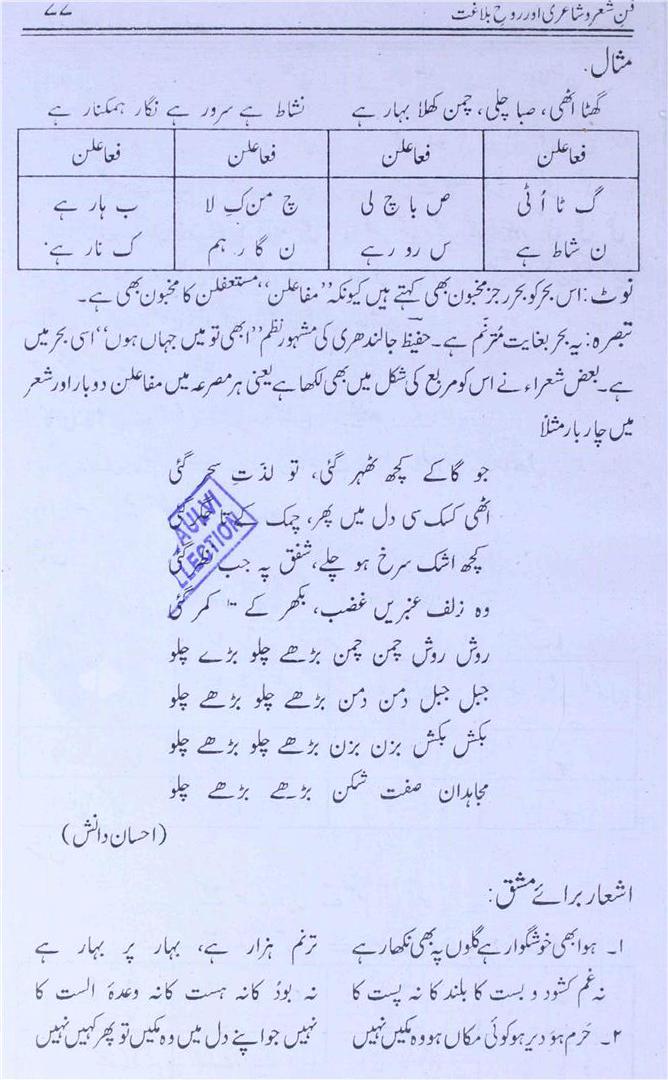 فن شعر و شاعری اور روح بلاغت ۷۷
مثال.
گھٹا اٹھی، صبا چلی، چمن کھلا بہار ہے نشاط ہے سرور ہے نگار ہمکنار ہے
فعاعلن فعاعلن فعاعلن فعاعلن
گ ٹا اُ ٹی ص با چ لی چ من کِ لا ب ہار ہے
ن شاط ہے س رو رہے ن گا ر ہم ک نار ہے.
نوٹ: اس بحر کو بحر رجز مخبون بھی کہتے ہیں کیونکہ ”مفاعلن“ مستفعلن کا مخبون بھی ہے۔
تبصرہ: یہ بحر بغایت مُترنّم ہے۔ حفیظ جالندھری کی مشہور نظم ”ابھی تو میں جہاں ہوں“ اسی بحر میں
ہے۔ بعض شعراء نے اس کو مربع کی شکل میں بھی لکھا ہے یعنی ہر مصرعہ میں مفاعلن دو بار اور شعر
میں چار بار مثلاً
جو گا کے کچھ ٹھہر گئی، تو لذّتِ سحر گئی
اٹھی کسک سی دل میں پھر، چمک کے
کچھ اشک سرخ ہو چلے، شفق پہ جب گئی
وہ زلف عنبریں غضب، بکھر کے تا کمر گئی
روش روش چمن چمن بڑھے چلو بڑے چلو
جبل جبل دمن دمن بڑھے چلو بڑھے چلو
بکش بکش بزن بزن بڑھے چلو بڑھے چلو
مجاہدان صفت شکن بڑھے بڑھے چلو
(احسان دانش)
AULVI
LLECTION
اشعار برائے مشق:
۱۔ ہوا بھی خوشگوار ہے گلوں پہ بھی نکھار ہے ترنم ہزار ہے، بہار پر بہار ہے
نہ غم کشود و بست کا بلند کا نہ پست کا نہ بودُ کا نہ ہست کا نہ وعدۂ الست کا
۲۔ حَرم ہو دیر ہو کوئی مکاں ہو وہ مکیں نہیں نہیں جو اپنے دل میں وہ مکیں تو پھر کہیں نہیں